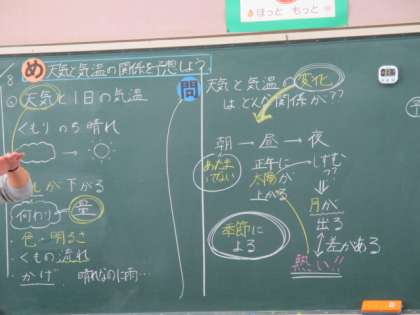 きほっと もっと
8
め 天気と気温の関係を予想しよう
天気と1日の気温
くもりのち晴れ
が下がる
何わり
雲
・色・明るさ
・くもの流れ
・かげ 晴れなのに雨…
問 天気と気温の変化
はどんな関係か??
朝 → 昼 → 夜
あたた
まってない
正午に
太陽が
上がる
しずむ
??
月が
出る
差がある
熱い!!
季節に
よる